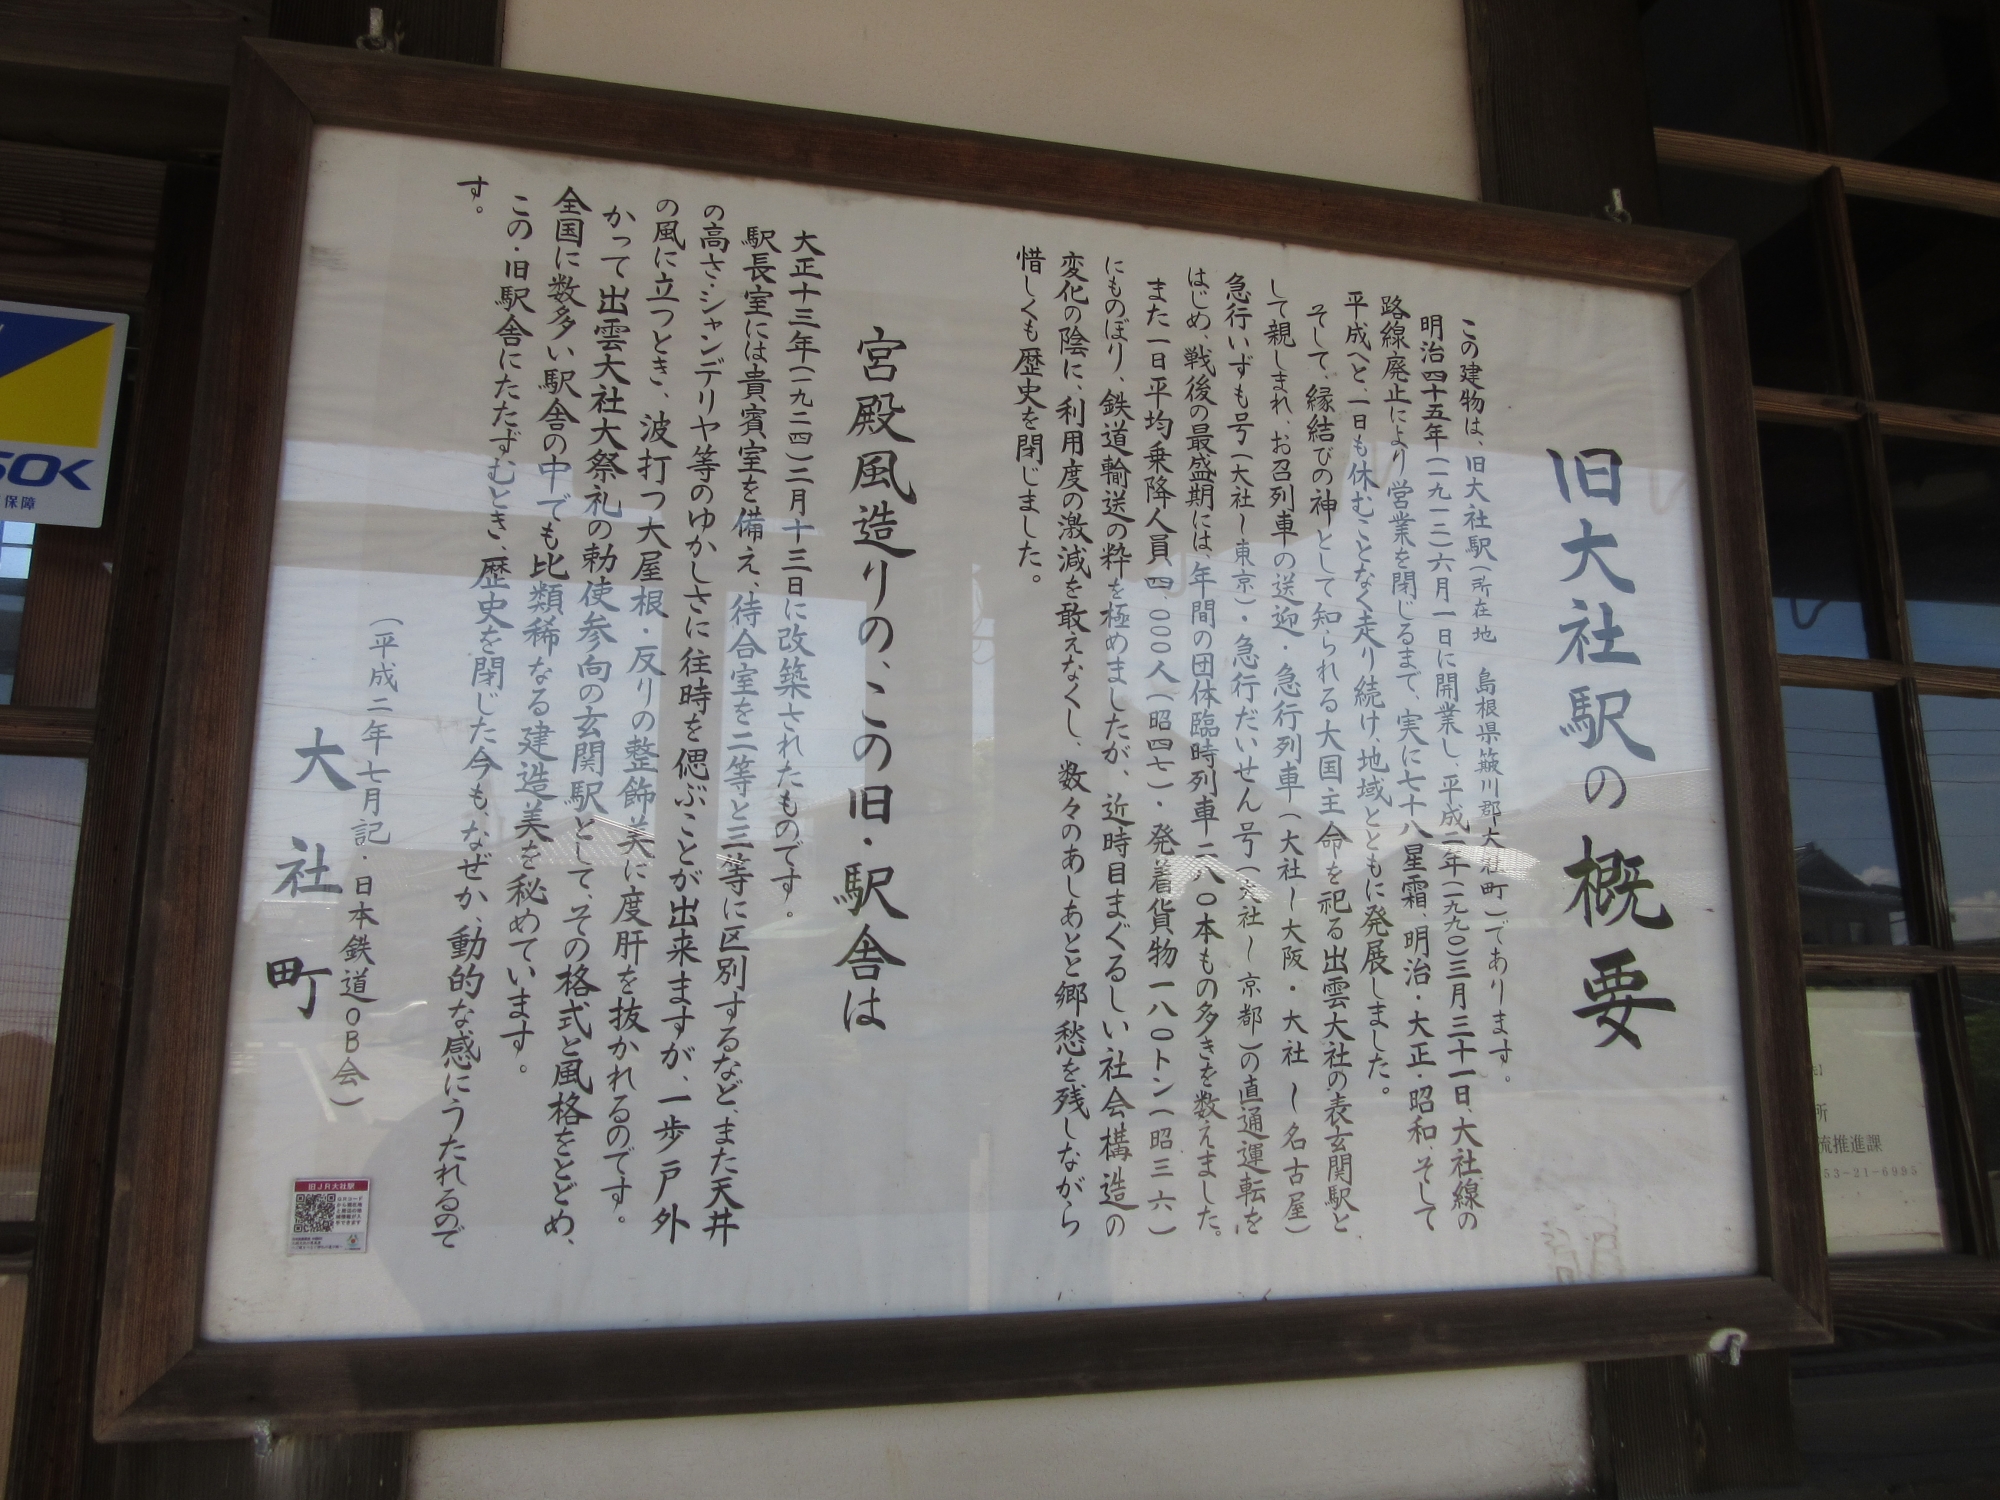 旧大社駅の概要
この建物は、旧大社駅(所在地 島根県簸川郡大社町)であります。
明治四十五年(一九一二)六月一日に開業し、平成二年(一九九〇)三月三十一日、大社線の
路線廃止により営業を閉じるまで、実に七十八星霜、明治・大正・昭和、そして
平成へと、一日も休むことなく走り続け、地域とともに発展しました。
そして、縁結びの神として知られる大国主命を祀る出雲大社の表玄関駅と
して親しまれ、お召列車の送迎・急行列車(大社〜大阪・大社〜名古屋)
急行いずも号(大社〜東京)・急行だいせん号(大社〜京都)の直通運転を
はじめ、戦後の最盛期には、年間の団体臨時列車二八〇本もの多きを数えました。
また一日平均乗降人員四、〇〇〇人(昭四七)・発着貨物一八〇トン(昭三六)
にものぼり、鉄道輸送の粋を極めましたが、近時目まぐるしい社会構造の
変化の陰に、利用度の激減を敢えなくし、数々のあしあとと郷愁を残しながら
惜しくも歴史を閉じました。
宮殿風造りの、この旧・駅舎は
大正十三年(一九二四)二月十三日に改築されたものです。
駅長室には貴賓室を備え、待合室を二等と三等に区別するなど、また天井
の高さ・シャンデリヤ等のゆかしさに往時を偲ぶことが出来ますが、一歩戸外
の風に立つとき、波打つ大屋根・反りの整飾美に度肝を抜かれるのです。
かって出雲大社大祭礼の勅使参向の玄関駅として、その格式と風格をとどめ、
全国に数多い駅舎の中でも比類稀なる建造美を秘めています。
この・旧駅舎にたたずむとき、歴史を閉じた今も、なぜか、動的な感にうたれるので
す。
(平成二年七月記・日本鉄道OB会)
大社町
旧JR大社駅
保障
所
流推進課
53-21-6995